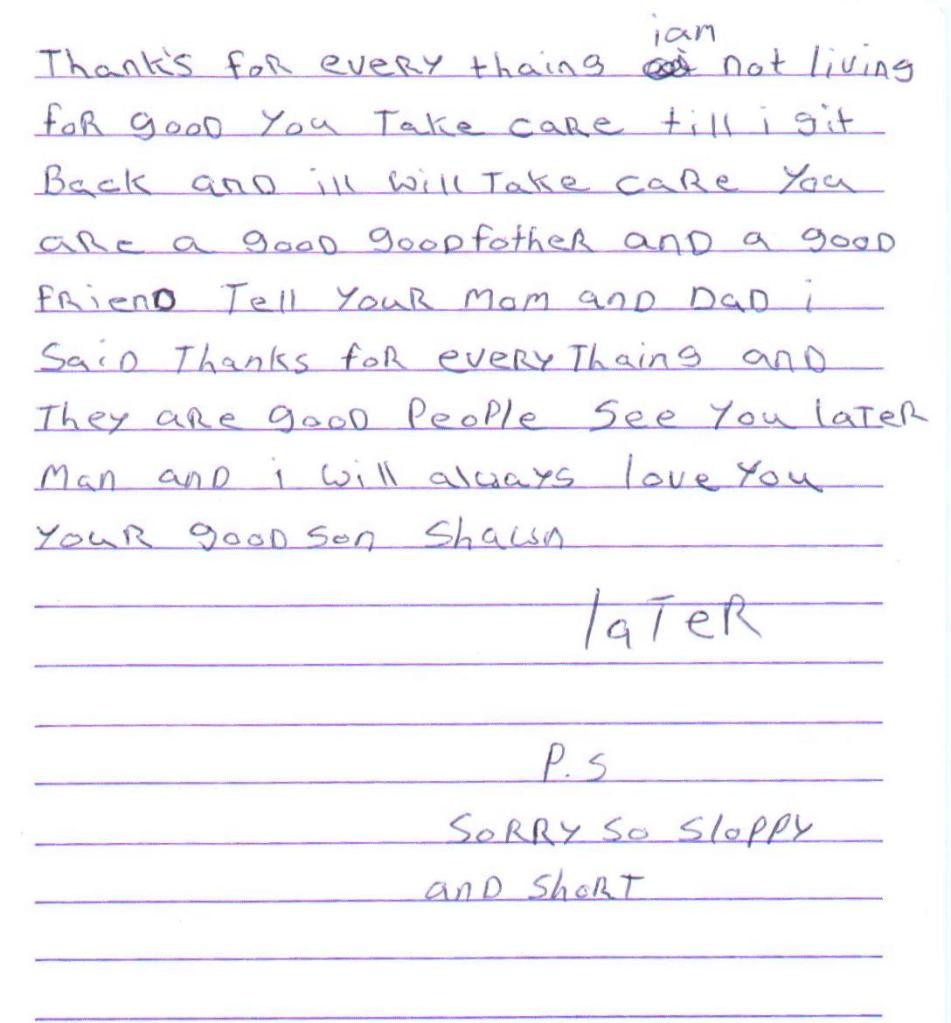 iam
Thank's foR eveRY thaing not living
foR gooD You Take caRe till i git
Back anD ill will Take caRe You
aRe a gooD gooDfotheR anD a gooD
fRienD Tell YouR Mom anD DaD i
SaiD Thanks foR eveRYThaing anD
They aRe gooD PeoPle See You laTeR
Man anD i will always love You
YouR gooD son Shawn
laTeR
P.S
SoRRY so SloPPY
anD ShoRT